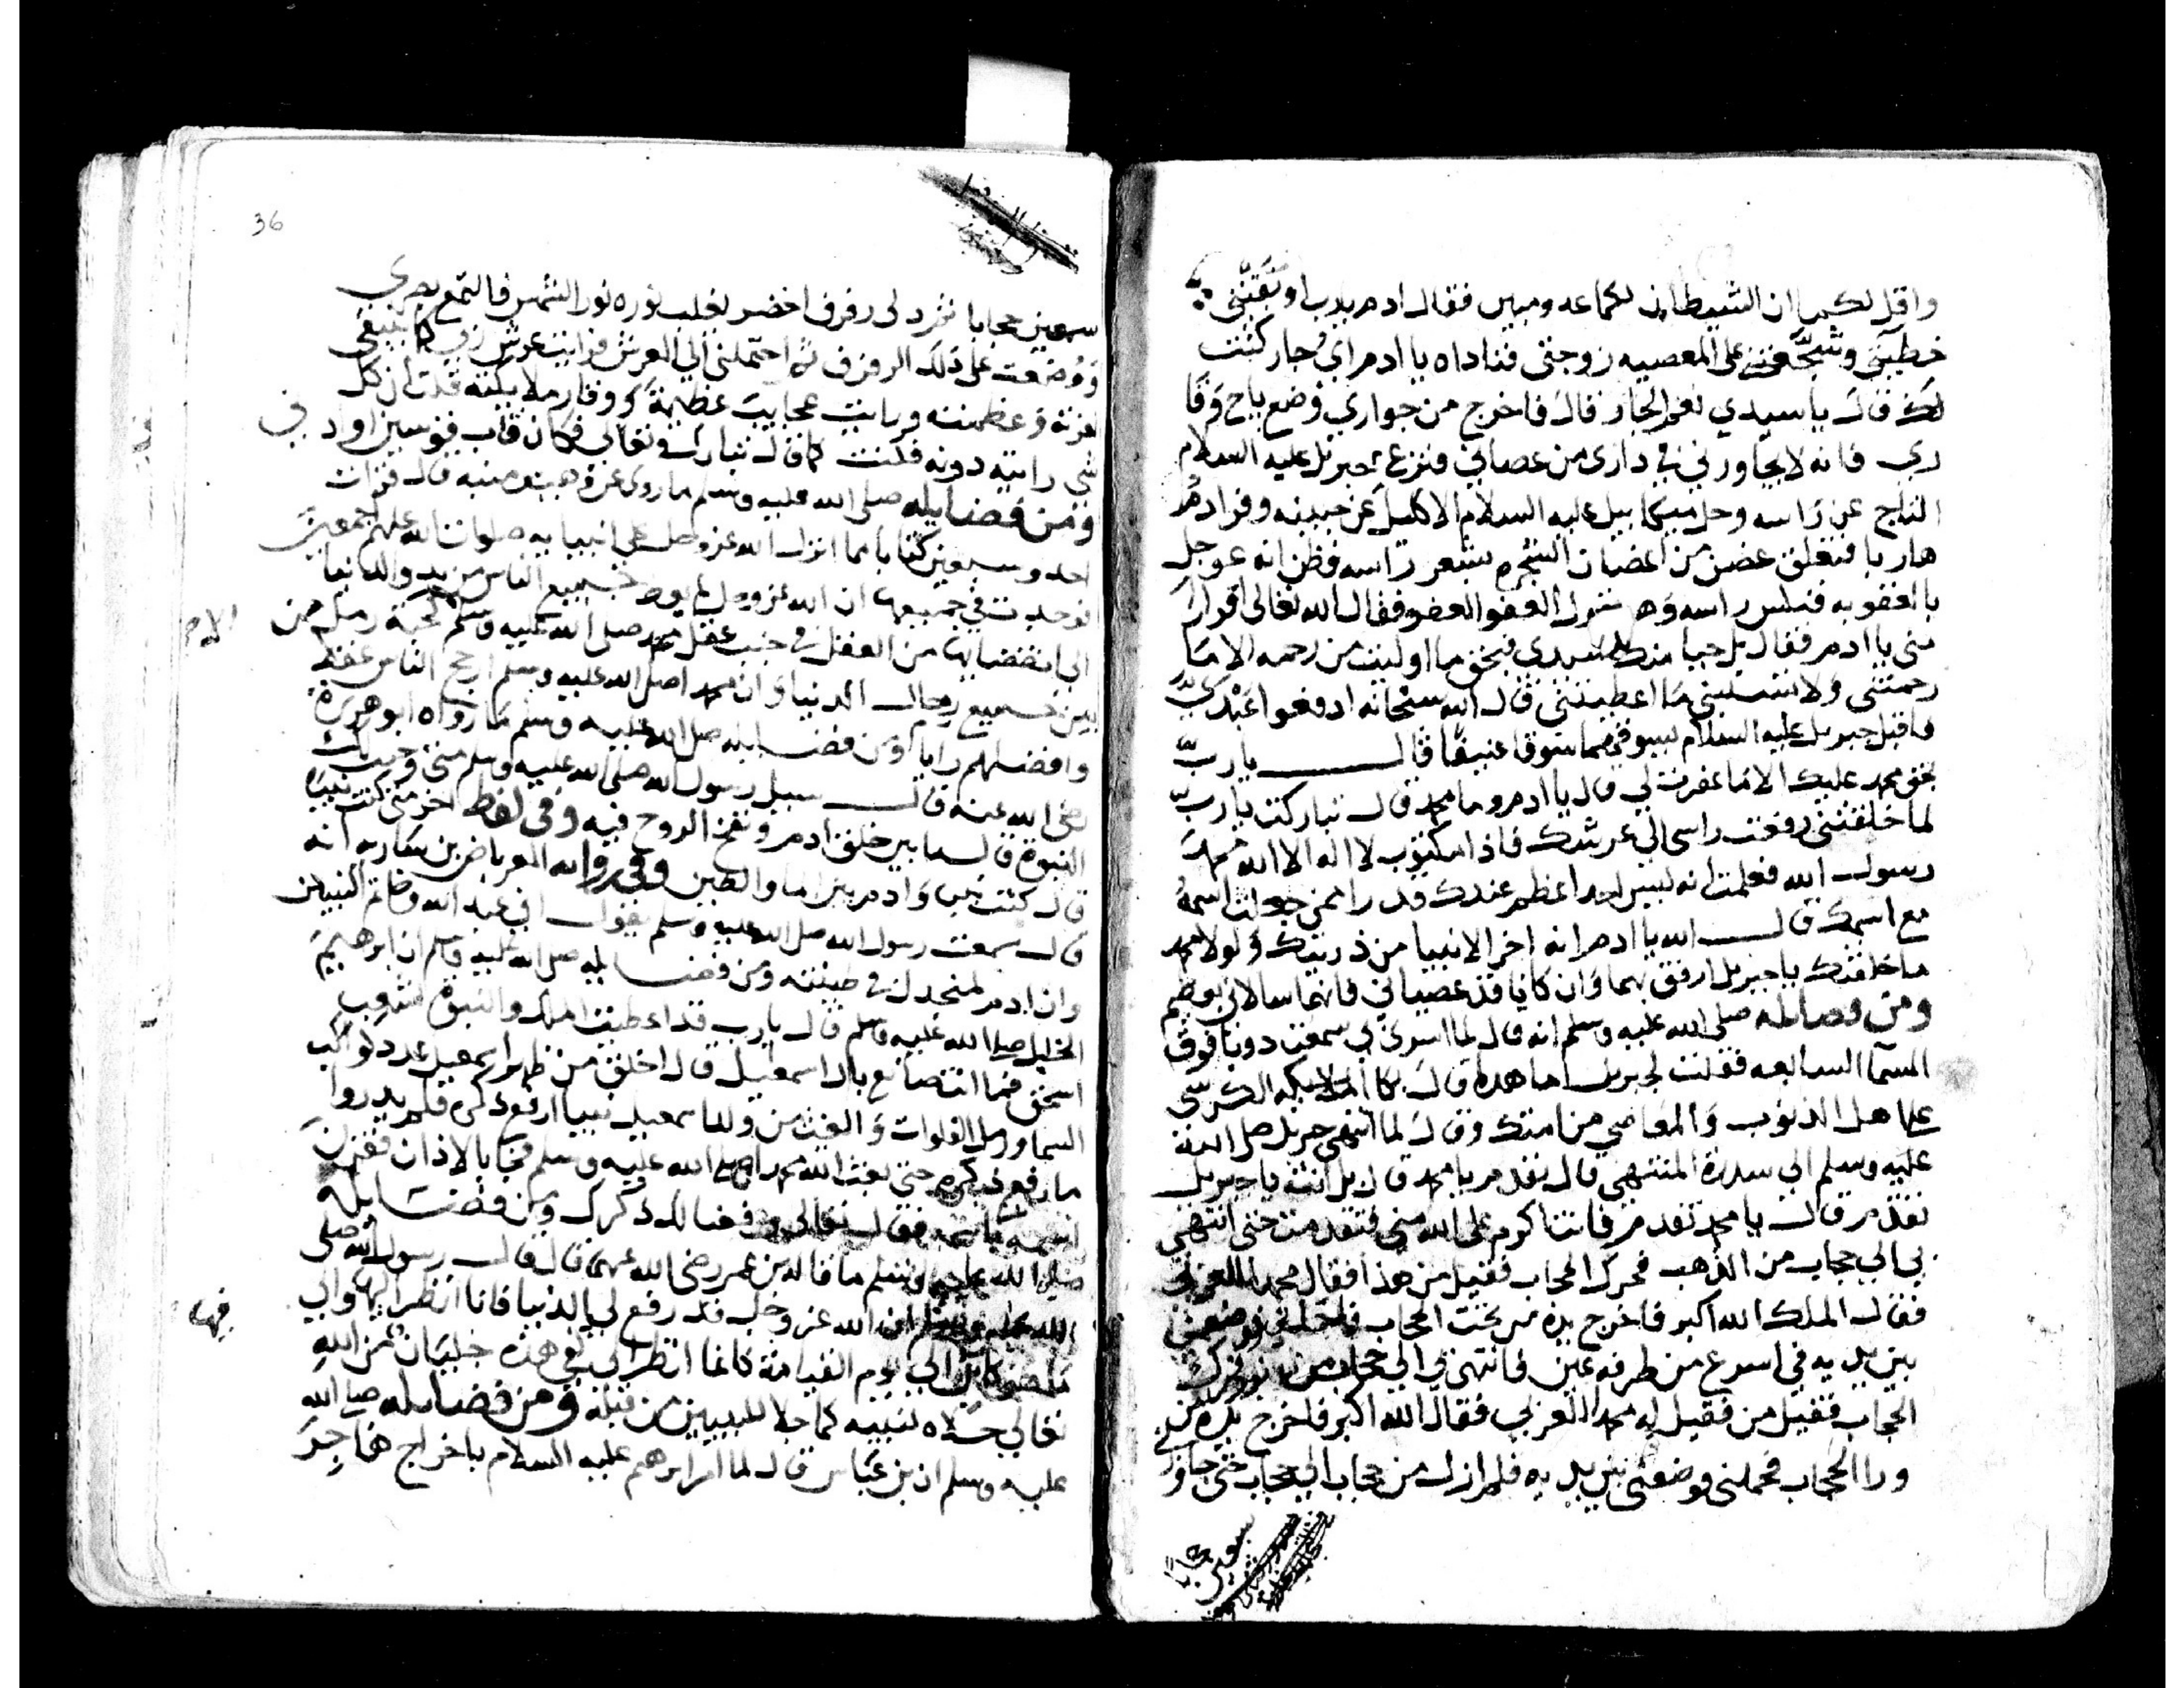 واقل لكما ان الشيطان لكما عدو مبين فقال ادم يارب اوبقتني
خطيتي وشجعتني على المعصيه زوجتي فناداه يا ادم اي جار كنت
لك قال يا سيدي نعم الجار قال فاخرج من جواري وضع تاج وقا
ري فانه لا يجاورني في داري من عصاني فنزع جبريل عليه السلام
التاج عن راسه وحل ميكاييل عليه السلام الاكليل عن جبينه وفر ادم
هاربا فتعلق غصن من اغصان الشجره بشعر راسه فظن انه عوجل
بالعقوبه فنكس راسه وهو يقول العفو العفو فقال الله تعالى افرارا
مني يا ادم فقال بل حيا منك سيدي فبحق ما اوليت من رحمه الا ما
رحمتني ولا تسلبني ما اعطيتني قال الله سبحانه ادفعوا عبدي
فاقبل جبريل عليه السلام يسوقهما سوقا عنيفا قال يا رب
بحق محمد عليك الا ما غفرت لي قال يا ادم وما محمد قال تباركت يا رب
لما خلقتني رفعت راسي الى عرشك فاذا مكتوب لا اله الا الله محمد
رسول الله فعلمت انه ليس احد اعظم عندك قدرا ممن جعلت اسمه
مع اسمك قال الله يا ادم انه اخر الانبيا من ذريتك ولولا محمد
ما خلقتك يا جبريل ارفق بهما وان كانا قد عصياني فانهما سالاني بعظيم
ومن فضايله صلى الله عليه وسلم انه قال لما اسري بي سمعت دويا فوق
السما السابعه فقلت لجبريل ما هذه قال بكا ملايكه الكرسي
على اهل الذنوب والمعاصي من امتك وقال لما انتهى جبريل صلى الله
عليه وسلم الى سدرة المنتهى قال تقدم يا محمد قال بل انت يا جبريل
تقدم قال يا محمد تقدم فانت اكرم على الله مني فتقدمت حتى انتهى
بي الى حجاب من الذهب فحرك الحجاب فقيل من هذا فقال محمد العربي
فقال الملك الله اكبر فاخرج يده من تحت الحجاب فاحتملني فوضعني
بين يديه في اسرع من طرفه عين فانتهى بي الى حجاب من فحرك
الحجاب فقيل من فقيل له محمد العربي فقال الله اكبر فاخرج يده من
ورا الحجاب فحملني فوضعني بين يديه فلم ازل من حجاب الى حجاب حتى جاوز
سبعين حجابا
36
سبعين حجابا ثم دلى رفرف اخضر يغلب نوره نور الشمس فالتمع بصري
ووضعت على ذلك الرفرف ثم احتملني الى العرش فرايت عرش ربي كما ينبغي
لعزته وعظمته ورايت عجايب عظيمة ووقار ملايكته قلت ان كل
شي رايته دونه فكنت كما قال تبارك وتعالى فكان قاب قوسين او ادنى
ومن فضايله صلى الله عليه وسلم ما روى عن وهب بن منبه قال قرات
احد وسبعين كتابا مما انزل الله عز وجل على انبيايه صلوات الله عليهم اجمعين
فوجدت في جميعها ان الله عز وجل لم يعط جميع الناس من بدو الدنيا
الى انقضايها من العقل في جنب عقل محمد صلى الله عليه وسلم الا كحبة رمل من
بين جميع رمال الدنيا وان محمدا صلى الله عليه وسلم ارجح الناس عقلا
وافضلهم رايا ومن فضايله صلى الله عليه وسلم ما رواه ابو هريرة
رضي الله عنه قال سيل رسول الله صلى الله عليه وسلم متى وجبت لك
النبوة قال ما بين خلق ادم ونفخ الروح فيه وفي لفظ اخر متى كنت نبيا
قال كنت نبيا وادم بين الما والطين وفي رواية العرباض بن ساريه انه
قال سمعت رسول الله صلى الله عليه وسلم يقول اني عبد الله وخاتم النبيين
وان ادم لمنجدل في طينته ومن فضايله صلى الله عليه وسلم ان ابرهيم
الخليل صلى الله عليه وسلم قال يا رب قد اعطيت الملك والنبوة
اسحق فما انت صانع بال اسمعيل قال اخلق من ظهر اسمعيل عدد كواكب
السما ورمل الفلوات وابعث من ولد اسمعيل نبيا ارفع ذكره فلم يدروا
ما رفع ذكره حتى بعث الله محمدا صلى الله عليه وسلم فجا بالاذان فقرن
اسمه باسمه فقال تعالى ورفعنا لك ذكرك ومن فضايله
صلى الله عليه وسلم ما قاله بن عمر رضي الله عنهما قال قال رسول الله صلى
الله عليه وسلم ان الله عز وجل قد رفع لي الدنيا فانا انظر اليها والى
ما هو كاين الى يوم القيامة كانما انظر الى كفي هذه جليان من الله
فيها
تعالى جلاه لنبيه كما جلا للنبيين من قبله ومن فضايله صلى الله
عليه وسلم ان بن عباس قال لما امر ابرهيم عليه السلام باخراج هاجر